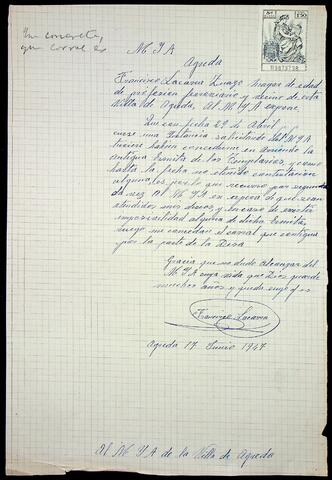 En concreto,
que corral es
M Y A
Agreda
Francisco Lacarra Zuazo mayor de edad
de profesion panadero y vecino de esta
Villa de Agreda, Al M Y A expone.
Que con fecha 29 de Abril y
curse una Ynstancia solicitando del M Y A
tuviera a bien concederme en arriendo la
antigua Ermita de los Templarios y como
hasta la fecha no e tenido contestacion
alguna, es por lo que recurro por segunda
vez al M Y A en espera de que sean
atendidos mis deseos, y en caso de existir
imposibilidad alguna de dicha Ermita,
ruego me concedan el corral que contigua
por la parte de la
Gracia que no dudo alcanzar del
M Y A cuya vida que Dios guarde
muchos años y queda suyo
Francisco Lacarra
Agreda 17 Junio 1947
Al M Y A de la Villa de Agreda
1'50